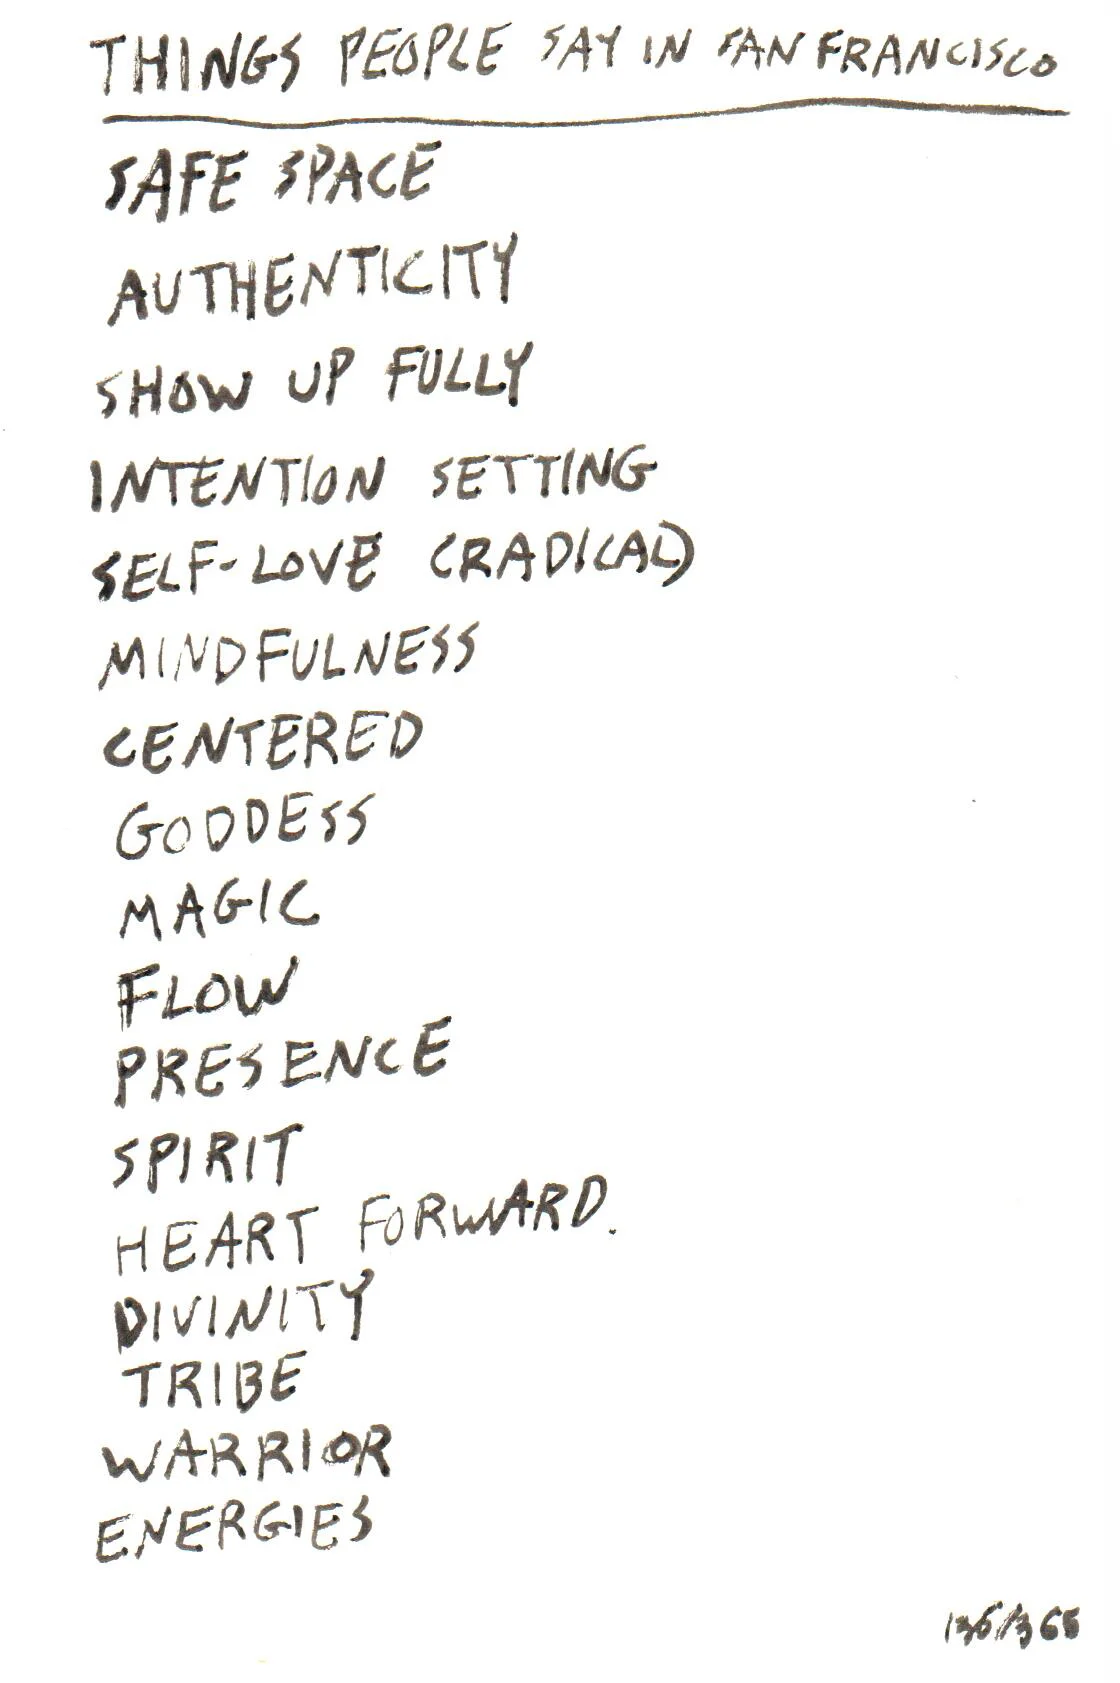 THINGS PEOPLE SAY IN SAN FRANCISCO
SAFE SPACE
AUTHENTICITY
SHOW UP FULLY
INTENTION SETTING
SELF-LOVE (RADICAL)
MINDFULNESS
CENTERED
GODDESS
MAGIC
FLOW
PRESENCE
SPIRIT
HEART FORWARD.
DIVINITY
TRIBE
WARRIOR
ENERGIES